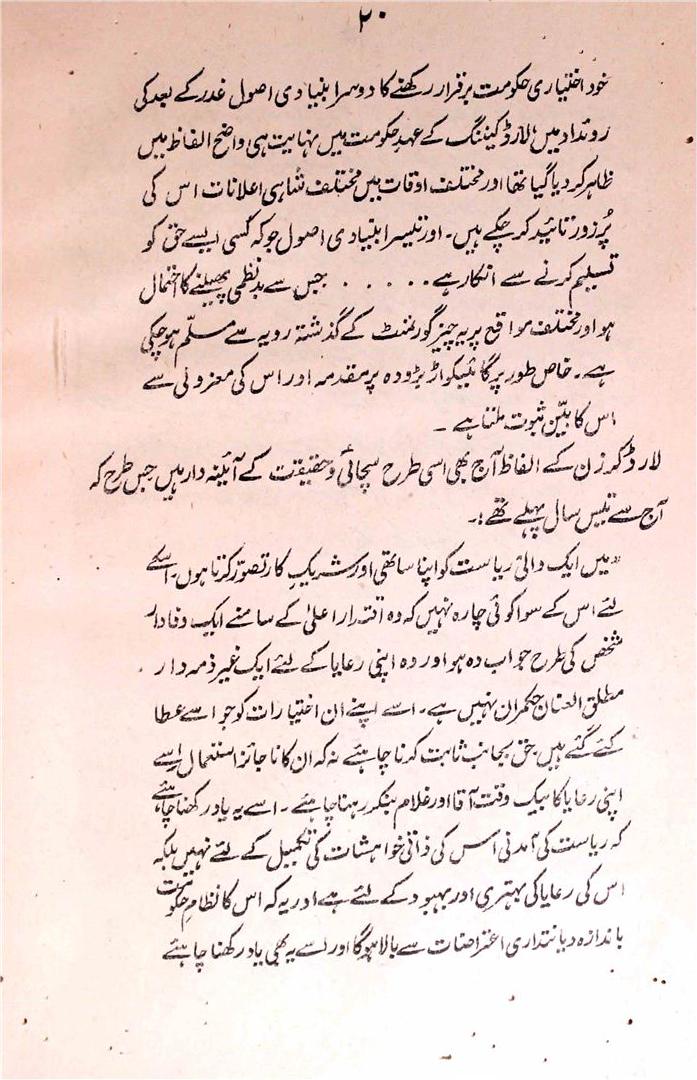 ۲۰
خود اختیاری حکومت برقرار رکھنے کا دوسرا بنیادی اصول غدر کے بعد کی
روئداد میں لارڈ کیننگ کے عہد حکومت میں نہایت ہی واضح الفاظ میں
ظاہر کر دیا گیا تھا اور مختلف اوقات میں مختلف شاہی اعلانات اس کی
پُرزور تائید کر چکے ہیں۔ اور تیسرا بنیادی اصول جو کہ کسی ایسے حق کو
تسلیم کرنے سے انکار ہے ..... جس سے بدنظمی پھیلنے کا احتمال
ہو اور مختلف مواقع پر یہ چیز گورنمنٹ کے گذشتہ رویہ سے مسلّم ہو چکی
ہے۔ خاص طور پر گائیکواڑ بڑودہ پر مقدمہ اور اس کی معزولی سے
اس کا بیّن ثبوت ملتا ہے۔
لارڈ کرزن کے الفاظ آج بھی اسی طرح سچائی و حقیقت کے آئینہ دار ہیں جس طرح کہ
آج سے تیس سال پہلے تھے:۔
"میں ایک والئ ریاست کو اپنا ساتھی اور شریک کار تصوّر کرتا ہوں۔ اسکے
لئے اس کے سوا کوئی چارہ نہیں کہ وہ اقتدار اعلیٰ کے سامنے ایک وفادار
شخص کی طرح جواب دہ ہو اور وہ اپنی رعایا کے لئے ایک غیر ذمہ دار
مطلق العنان حکمران نہیں ہے۔ اسے اپنے ان اختیارات کو جو اسے عطا
کئے گئے ہیں حق بجانب ثابت کرنا چاہئے نہ کہ ان کا ناجائز استعمال اسے
اپنی رعایا کا بیک وقت آقا اور غلام بنکر رہنا چاہئے۔ اسے یہ یاد رکھنا چاہئے
کہ ریاست کی آمدنی اس کی ذاتی خواہشات کی تکمیل کے لئے نہیں بلکہ
اس کی رعایا کی بہتری اور بہبود کے لئے ہے اور یہ کہ اس کا نظام حکومت
باندازہ دیانتداری اعتراضات سے بالا ہو گا اور اسے یہ بھی یاد رکھنا چاہئے